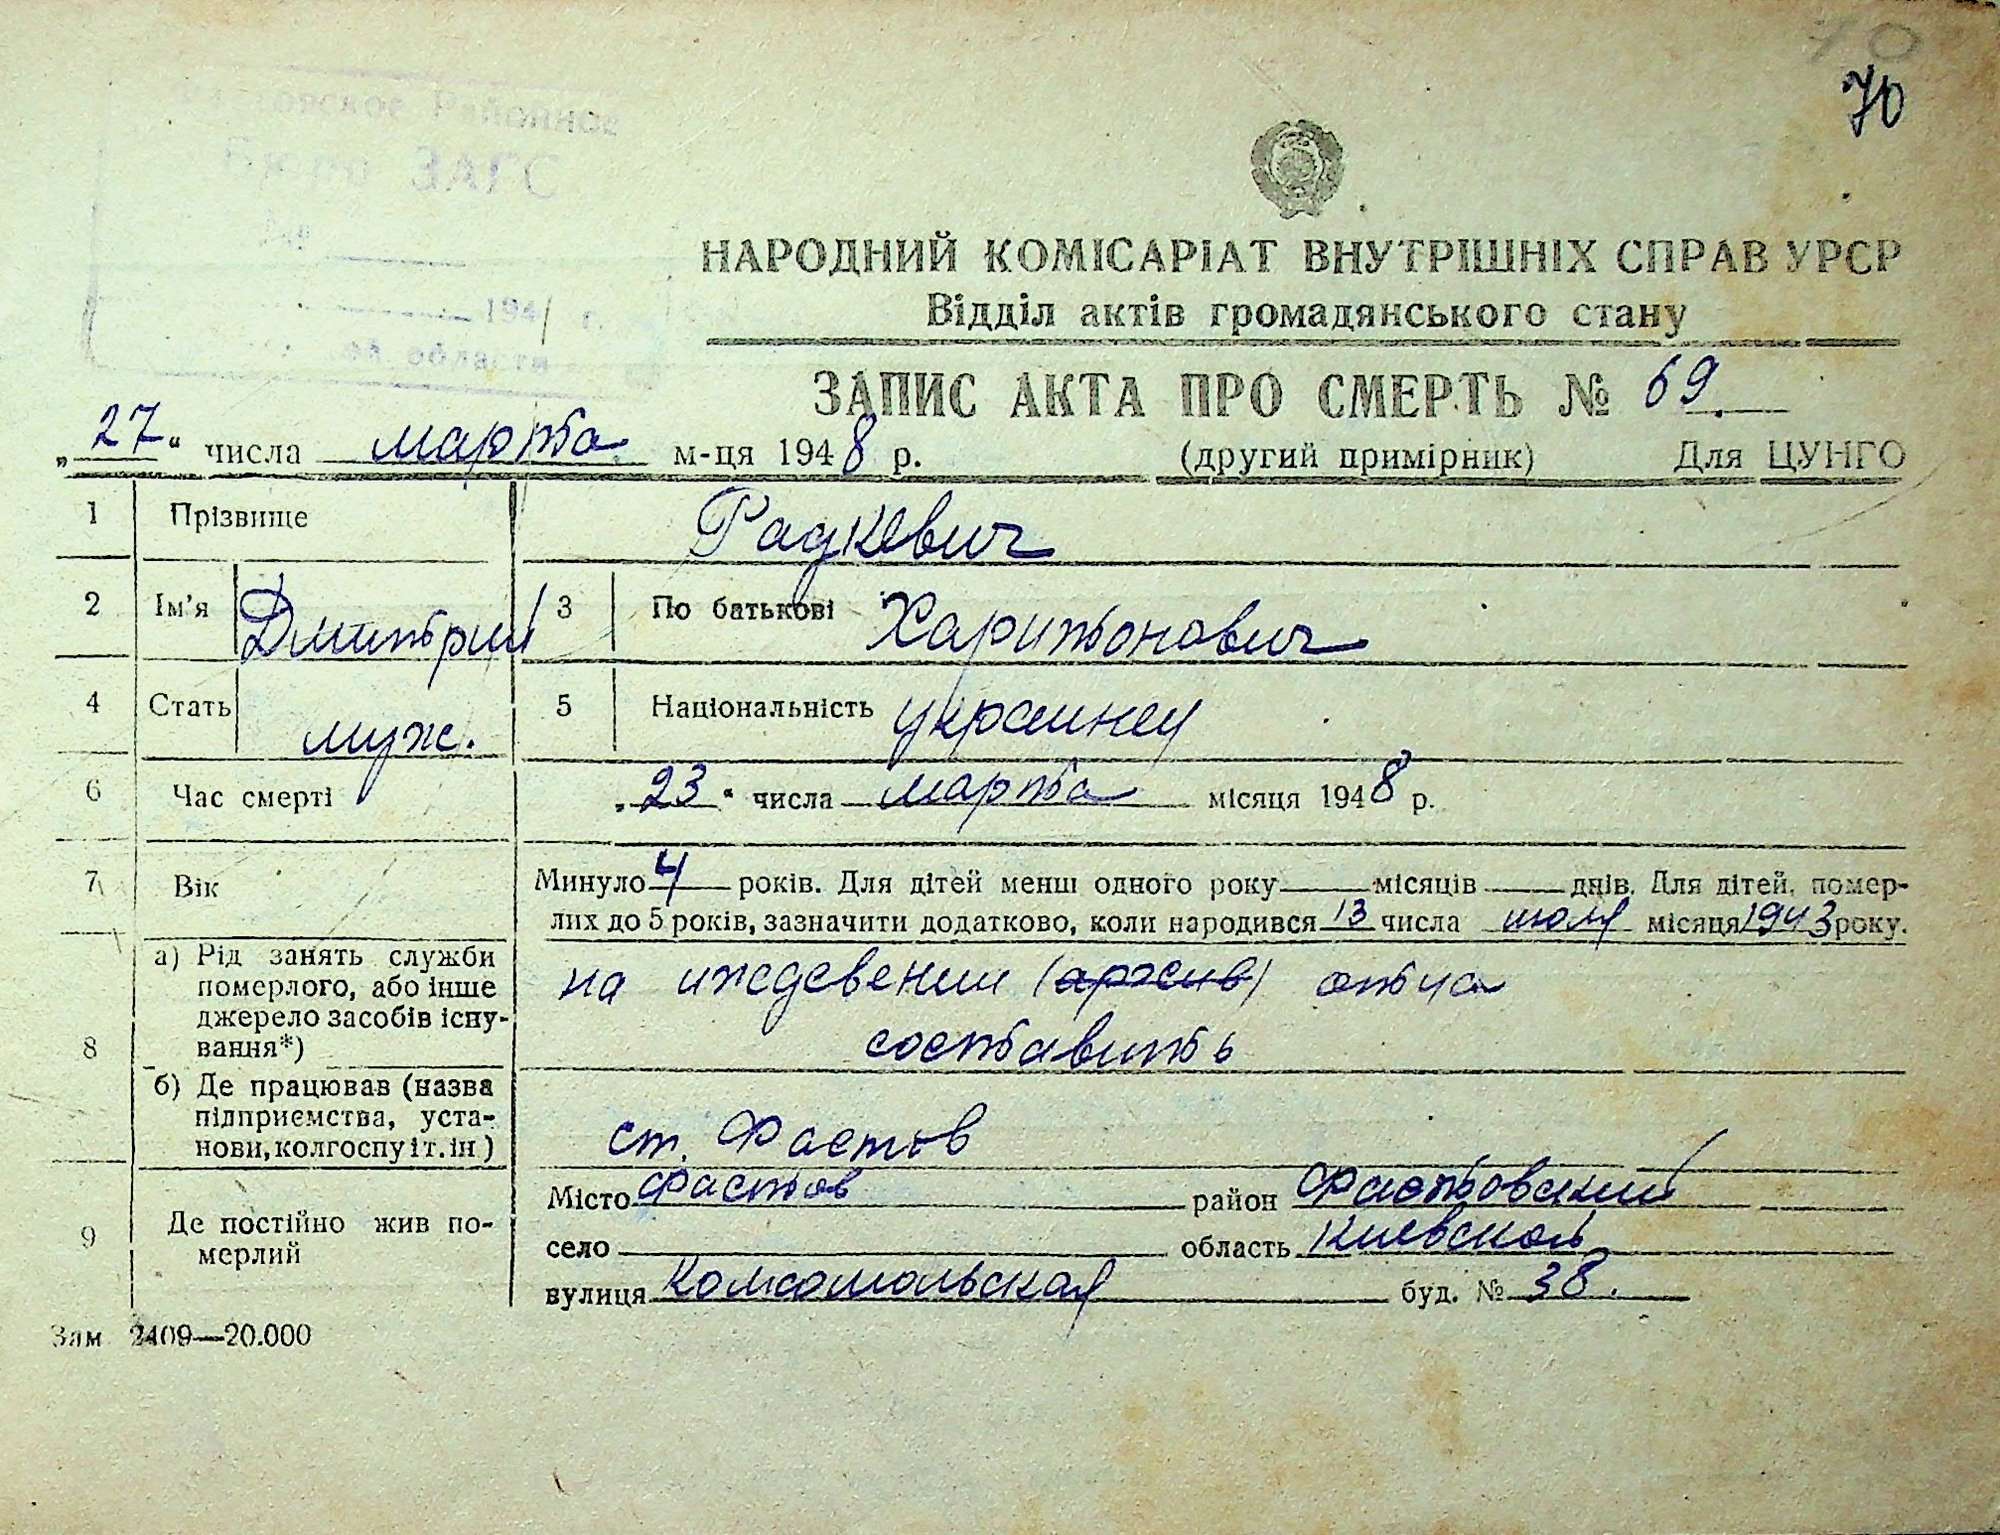 70
70
Районное
Бюро ЗАГС
194 г.
области
НАРОДНИЙ КОМІСАРІАТ ВНУТРІШНІХ СПРАВ УРСР
Відділ актів громадянського стану
ЗАПИС АКТА ПРО СМЕРТЬ № 69.
„27“ числа марта м-ця 1948 р. (другий примірник) Для ЦУНГО
1 Прізвище Радкевич
2 Ім'я Дмитрий 3 По батькові Харитонович
4 Стать муж. 5 Національність украинец
6 Час смерті „23“ числа марта місяця 1948 р.
7 Вік Минуло 4 років. Для дітей менш одного року місяців днів. Для дітей, помер-
лих до 5 років, зазначити додатково, коли народився 13 числа июля місяця 1943 року.
8 а) Рід занять служби
померлого, або інше
джерело засобів існу-
вання*)
на иждевении отца
составить
б) Де працював (назва
підприємства, уста-
нови, колгоспу і т. ін)
ст. Фастов
9 Де постійно жив по-
мерлий
Місто Фастов район Фастовский
село область Киевской
вулиця Комсомольская буд. № 38.
Зам 2409—20.000